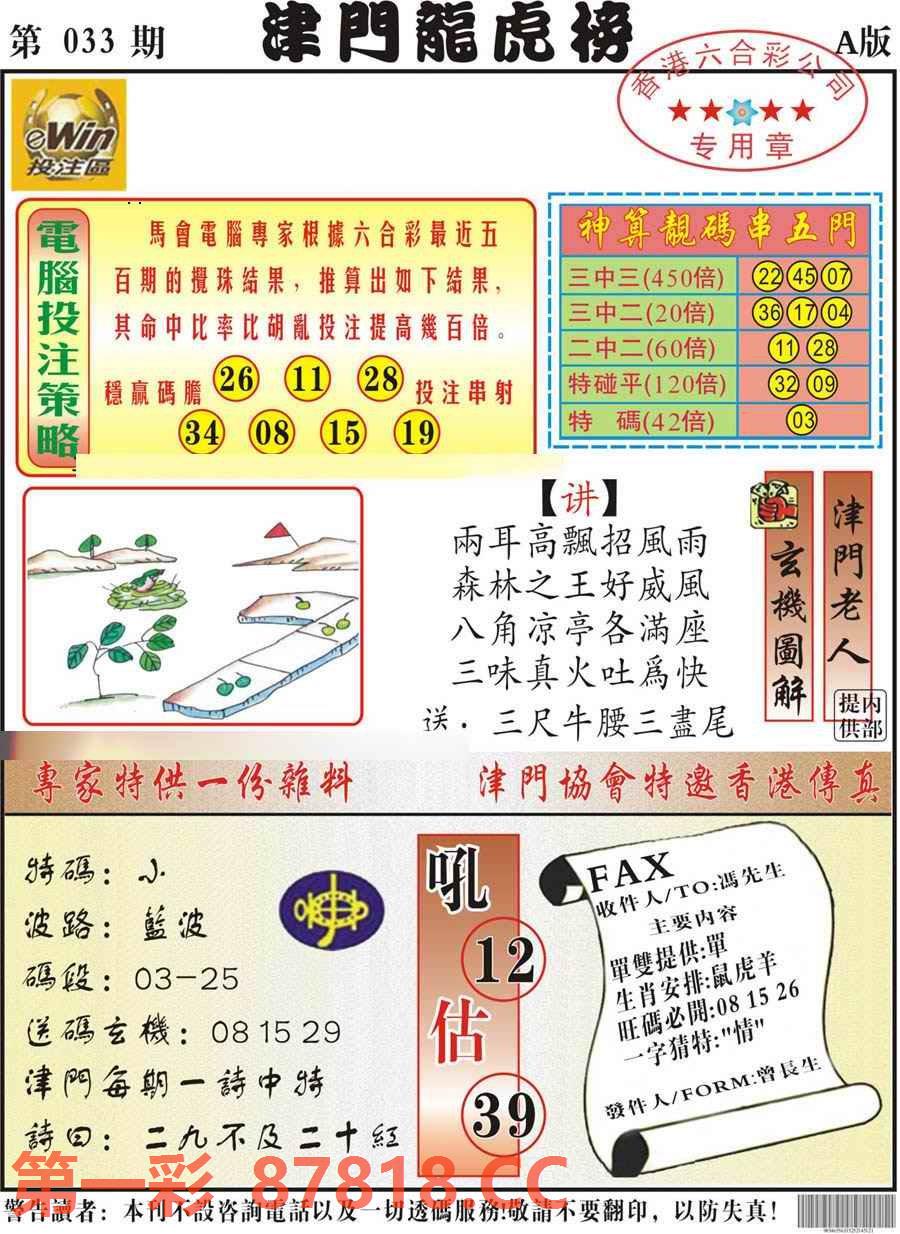 第 033 期
津門龍虎榜
A版
香港六合彩公司
专用章
eWin
投注區
電腦投注策略
馬會電腦專家根據六合彩最近五
百期的攪珠結果，推算出如下結果，
其命中比率比胡亂投注提高幾百倍。
穩贏碼膽 26 11 28 投注串射
34 08 15 19
神算靚碼串五門
三中三(450倍) 22 45 07
三中二(20倍) 36 17 04
二中二(60倍) 11 28
特碰平(120倍) 32 09
特 碼(42倍) 03
【讲】
兩耳高飄招風雨
森林之王好威風
八角凉亭各滿座
三味真火吐爲快
送：三尺牛腰三盡尾
玄機圖解
津門老人
内部提供
專家特供一份雜料
津門協會特邀香港傳真
特碼：小
波路：藍波
碼段：03-25
送碼玄機：08 15 29
津門每期一詩中特
詩曰：二九不及二十紅
吼
12
估
39
FAX
收件人/TO:馮先生
主要内容
單雙提供:單
生肖安排:鼠虎羊
旺碼必開:08 15 26
一字猜特:"情"
發件人/FORM:曾長生
第一彩 87818.CC
警告讀者：本刊不設咨詢電話以及一切透碼服務!敬請不要翻印，以防失真!